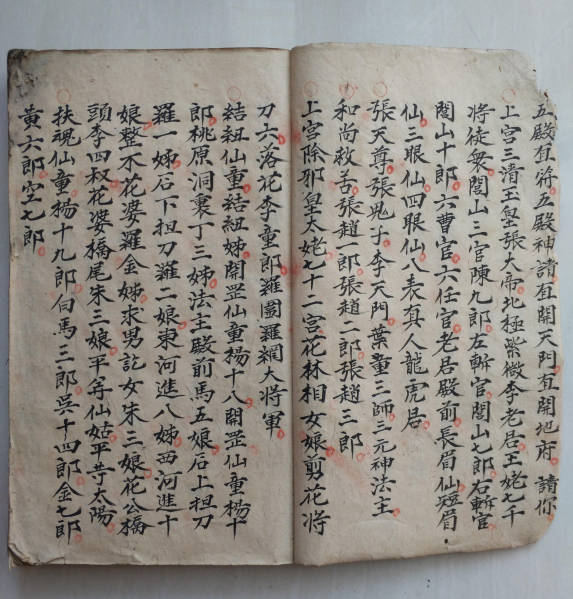 五殿直符五殿神請直開天門直開地府請你
上宮三清玉皇張大帝北極紫微李老君王姥七千
將徒眾閭山三官陳九郎左斬官閭山七郎右斬官
閭山十郎六曹官六任官老君殿前長眉仙短眉
仙三眼仙四眼仙八表真人龍虎君
張天尊張鬼子李天門葉童三師三元神法主
和尚救苦張趙一郎張趙二郎張趙三郎
上宮除邪皇太姥七十二宮花林相女娘剪花將
刀六落花李童郎羅圖羅網大將軍
結紐仙童結紐姊開罡仙童楊十八開罡仙童楊十
郎桃原洞裏丁三姊法主殿前馬五娘石上担刀
羅一姊石下担刀羅二娘東河進八姊西河進十
娘整不花婆羅金姊求男訖女朱三娘花公橋
頭李四叔花婆橋尾朱三娘平等仙姑平等太陽
扶魂仙童楊十九郎白馬三郎吳十四郎金七郎
黃六郎空七郎